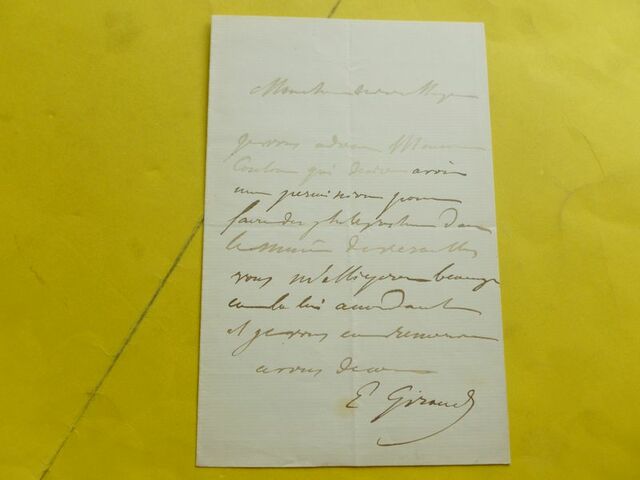 Monsieur
je vous adresse Monsieur
qui désire avoir
une permission pour
faire des photographies dans
le musée de Versailles
vous m'obligerez beaucoup
en la lui accordant
et je vous en remercie
à vous de cœur
E Giraud